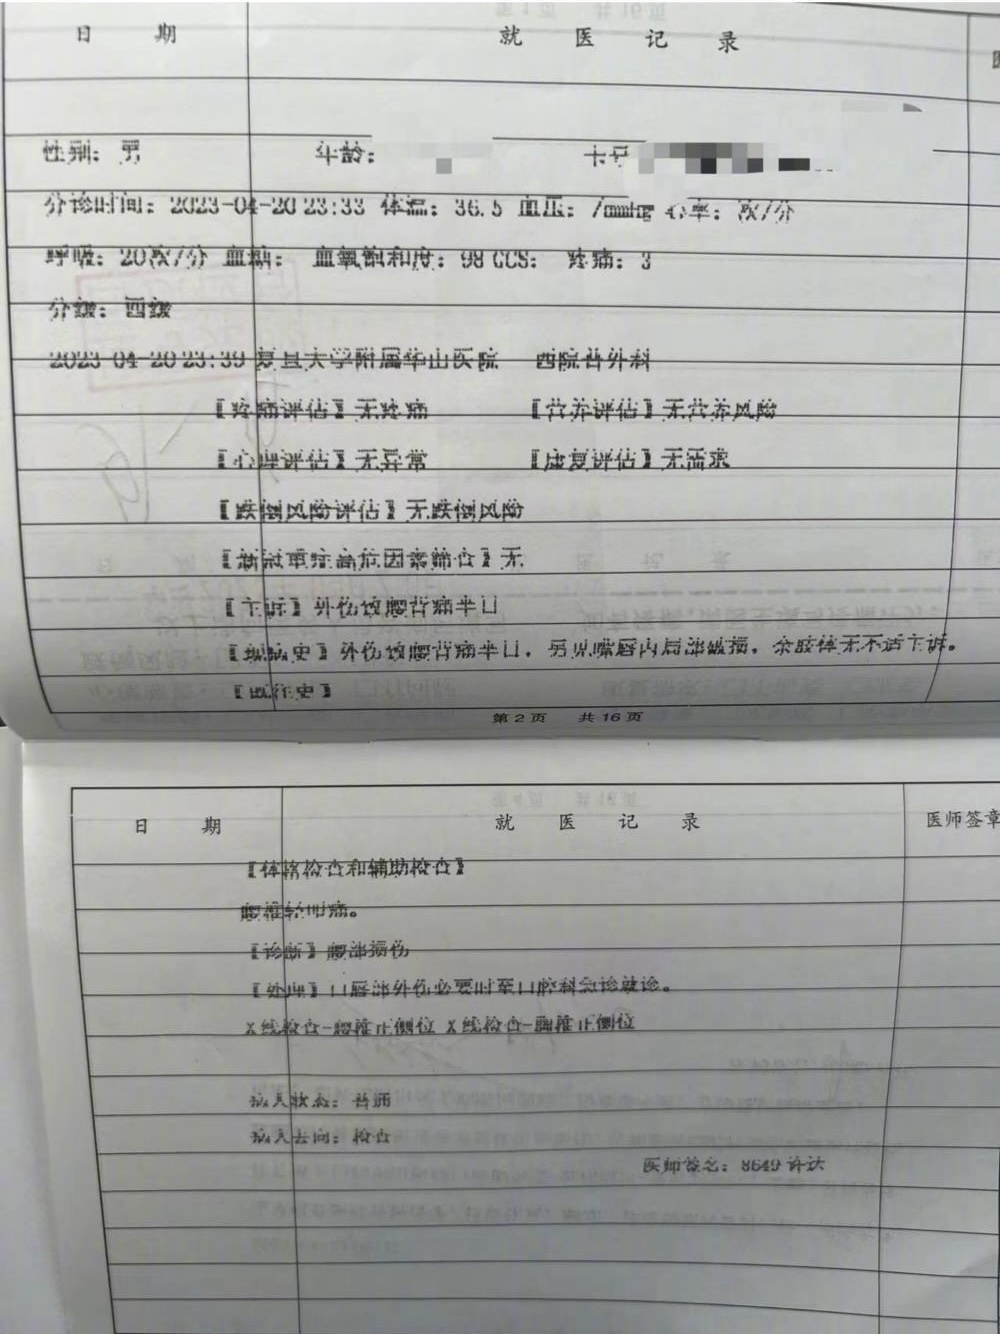 日 期 就 医 记 录
性别：男 年龄：
分诊时间：2023-04-20 23:33 体温：36.5 血压：/mmHg 心率：次/分
呼吸：20次/分 血糖： 血氧饱和度：98 GCS： 疼痛：3
分级：四级
2023-04-20 23:39 复旦大学附属华山医院 西院普外科
【疼痛评估】无疼痛 【营养评估】无营养风险
【心理评估】无异常 【康复评估】无需求
【跌倒风险评估】无跌倒风险
【新冠重症高危因素筛查】无
【主诉】外伤致腰背痛半日
【现病史】外伤致腰背痛半日，另见嘴唇内局部破损，余肢体无不适主诉。
【既往史】
第2页 共16页
日 期 就 医 记 录 医师签章
【体格检查和辅助检查】
腰椎轻叩痛。
【诊断】腰部损伤
【处理】口唇部外伤必要时至口腔科急诊就诊。
X线检查-腰椎正侧位 X线检查-胸椎正侧位
病人状态：普通
病人去向：检查
医师签名：8649 许达